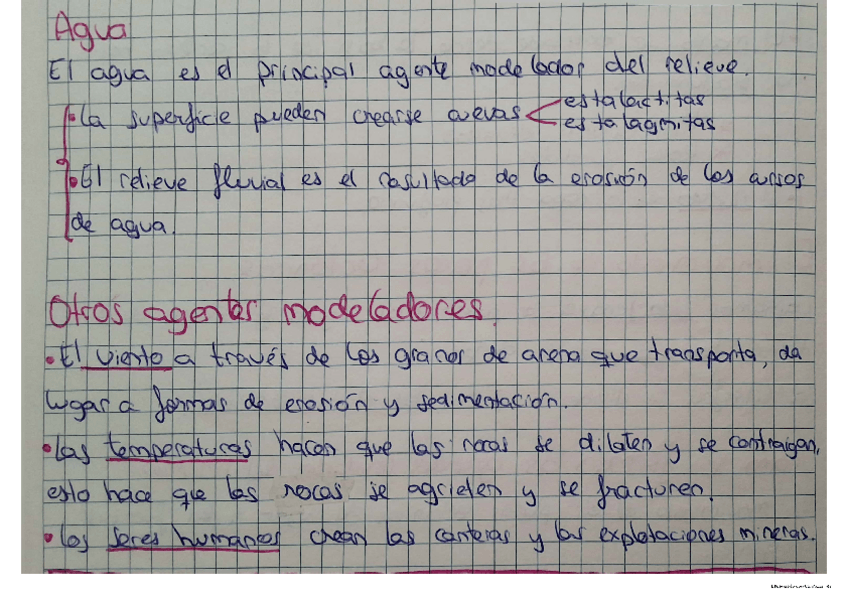 Agua
El agua es el principal agente modelador del relieve.
•La superficie pueden crearse cuevas < estalactitas
estalagmitas
•El relieve fluvial es el resultado de la erosión de los cursos
de agua.
Otros agentes modeladores.
•El viento a través de los granos de arena que transporta, da
lugar a formas de erosión y sedimentación.
•Las temperaturas hacen que las rocas se dilaten y se contraigan,
esto hace que las rocas se agrieten y se fracturen.
•Los seres humanos crean las canteras y las explotaciones mineras.